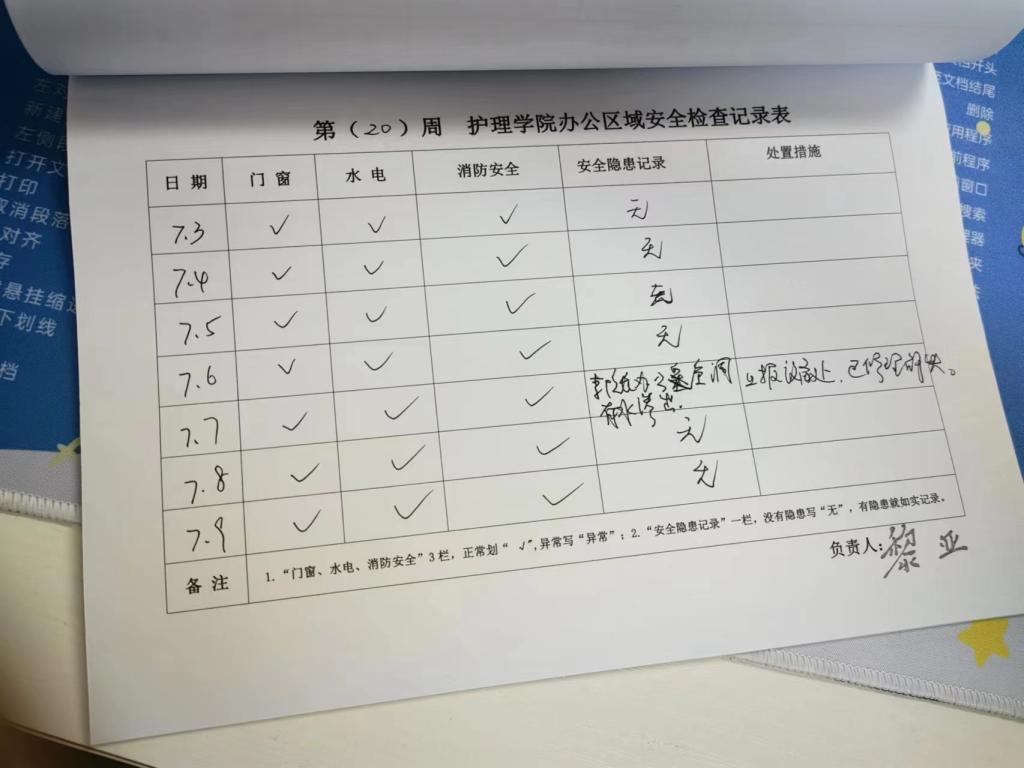 档开头
文档结尾
删除
应用程序
前程序
窗口
搜索
理器
夹
左对
新建
左侧段
打开文
打印
取消段落
对齐
存
悬挂缩进
下划线
档
第（20）周 护理学院办公区域安全检查记录表
日期 门窗 水电 消防安全 安全隐患记录 处置措施
7.3 ✓ ✓ ✓ 无
7.4 ✓ ✓ ✓ 无
7.5 ✓ ✓ ✓ 无
7.6 ✓ ✓ ✓ 无
7.7 ✓ ✓ ✓ 有水渗出. 已修理
7.8 ✓ ✓ ✓ 无
7.9 ✓ ✓ ✓ 无
备注 1.“门窗、水电、消防安全”3栏，正常划“√”,异常写“异常”；2.“安全隐患记录”一栏，没有隐患写“无”，有隐患就如实记录。
负责人:黎亚